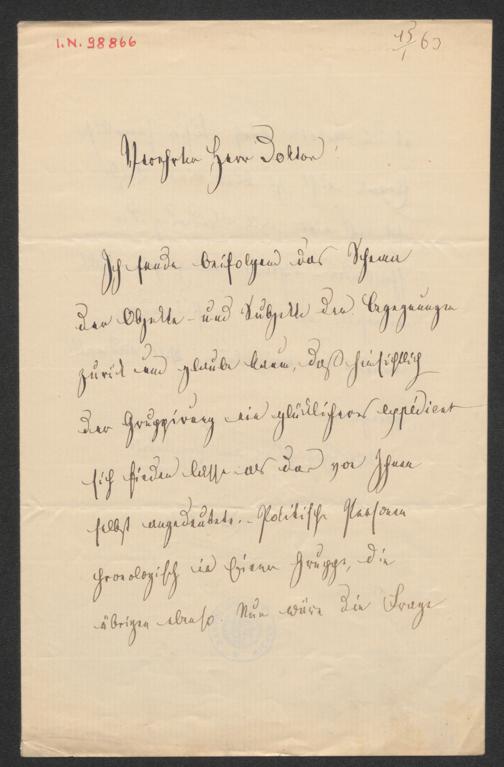 I.N. 98866
15/1 63
Verehrter Herr Doktor!
Ich sende beifolgend das Schema
der Objekte - und Subjekte der Begegnungen
zurük und glaube kaum, daß hinsichtlich
der Gruppirung ein glüklicheres Expédient
sich finden lasse als das von Ihnen
selbst angedeutete. - Politische Personen
chronologisch in Einer Gruppe, die
übrigen ebenso. Nun wäre die Frage